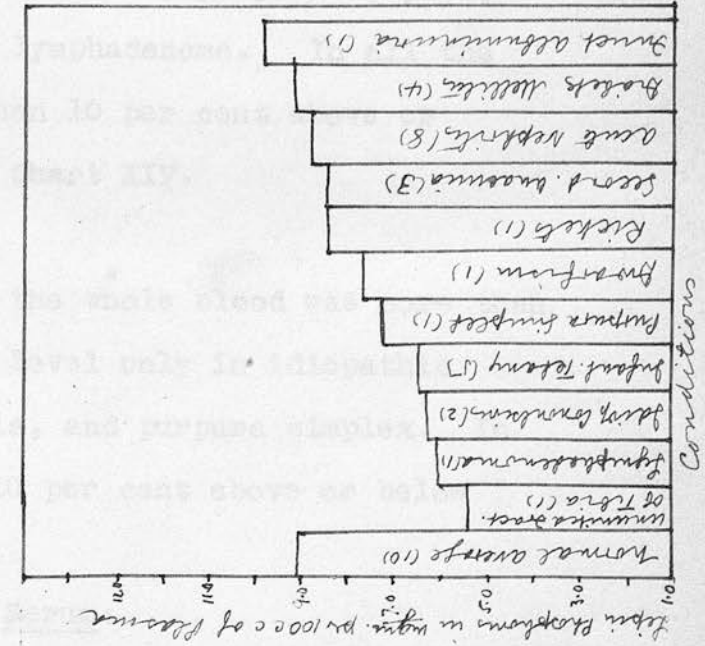 Lipin Phosphorus in mgm. per 100 c.c of Plasma
1.0 3.0 5.0 7.0 9.0 11.0 13.0
Normal average (10)
ununited fract.
of Tibia (1)
Lymphadenoma (1)
Infant Tetany (1)
Purpura Simplex (1)
Dwarfism (1)
Rickets (1)
Second anaemia (3)
Acute Nephritis (8)
Diabetes Mellitus (4)
Funct albuminuria (1)
Conditions
lymphadenoma. In all the
than 10 per cent above or
Chart XIV.
the whole blood was more than
level only in idiopathic
is, and purpura simplex. In
10 per cent above or below
Serum